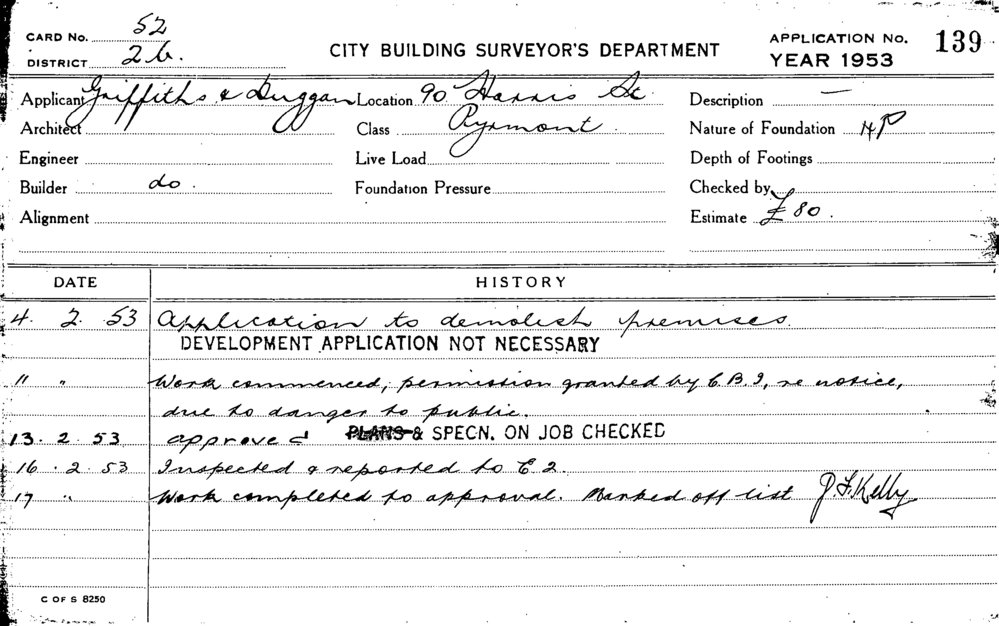 CARD No. 52
DISTRICT 2b.
CITY BUILDING SURVEYOR'S DEPARTMENT
APPLICATION No. 139
YEAR 1953
Applicant Griffiths & Duggan Location 90 Harris St. Description —
Architect Class Pyrmont. Nature of Foundation
Engineer Live Load Depth of Footings
Builder do. Foundation Pressure Checked by
Alignment Estimate £80.
DATE HISTORY
4. 2. 53 Application to demolish premises.
DEVELOPMENT APPLICATION NOT NECESSARY
" " Work commenced, permission granted by C.B.I, re notice,
due to danger to public.
13. 2. 53 approved PLANS & SPECN. ON JOB CHECKED
16. 2. 53 Inspected & reported to E2.
17 " Work completed to approval. Marked off list J.F. Kelly
C OF S 8250